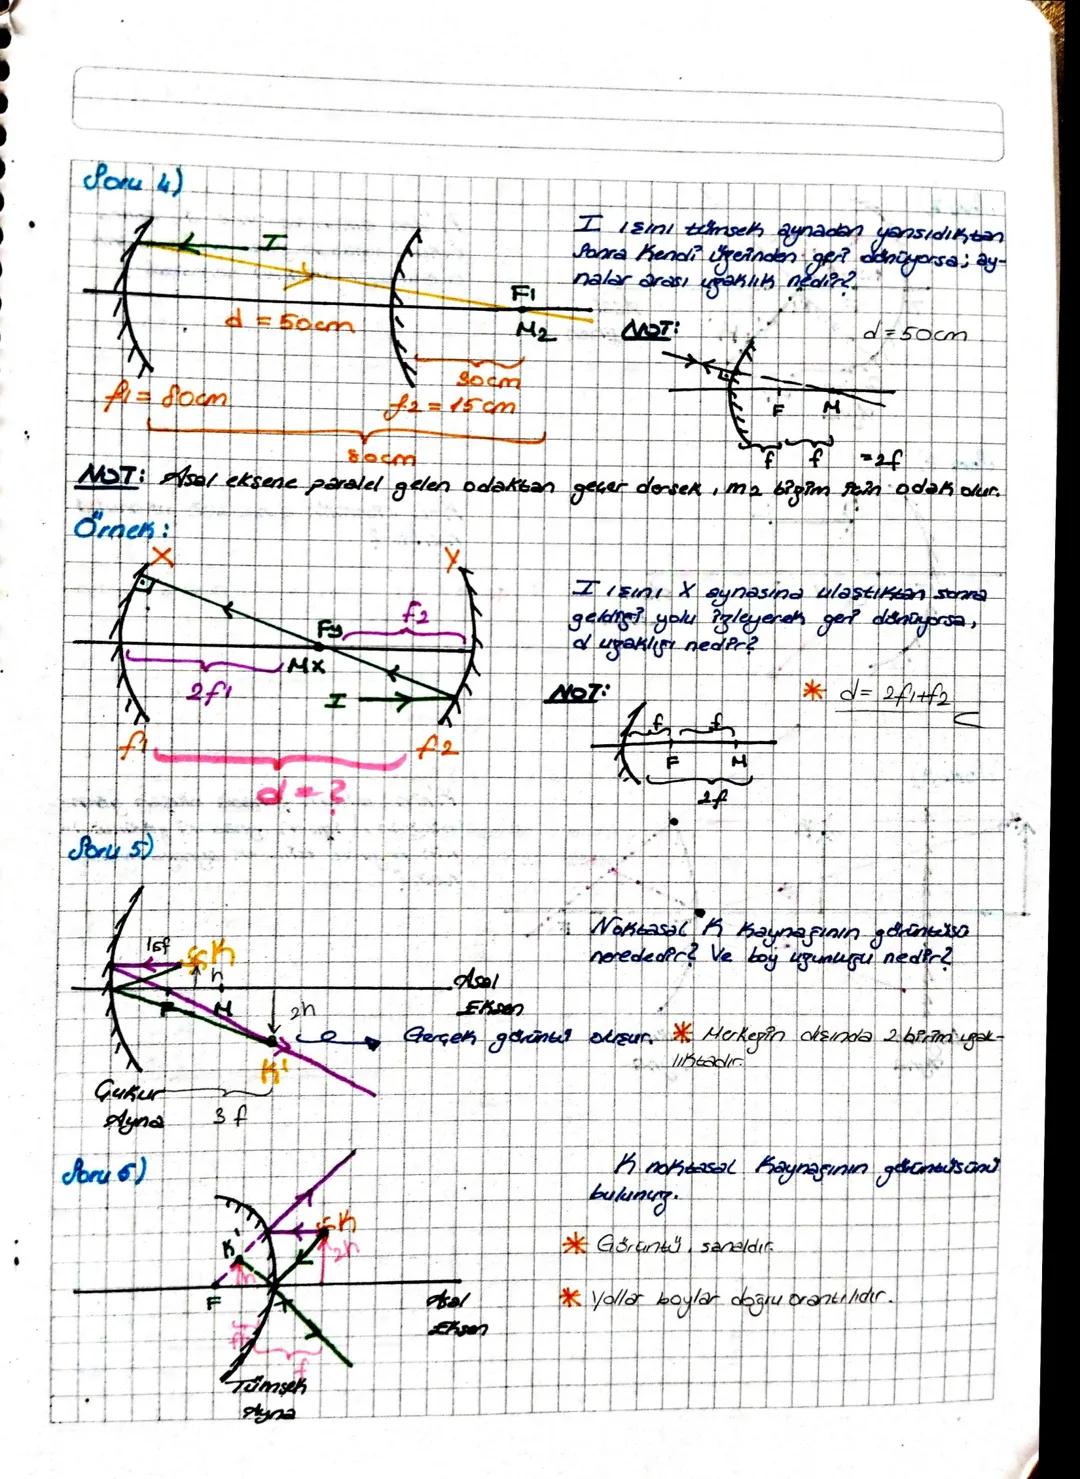 Soru 4)
I ışını tümsek aynadan yansıdıktan
sonra kendi üzerinden geri dönüyorsa; ay-
nalar arası uzaklık nedir?
I
d = 50cm
F1
M2
30cm
f1 = 80cm
f2 = 15cm
80cm
NOT:
d = 50cm
F
M
f
f
=2f
NOT: Asal eksene paralel gelen odaktan geçer dersek, m2 bizim için odak olur.
Örnek:
X
Y
I ışını X aynasına ulaştıktan sonra
geldiği yolu izleyerek geri dönüyorsa,
d uzaklığı nedir?
Fy
f2
Mx
2f1
I
f1
f2
d = ?
NOT:
* d = 2f1+f2
f
f
F
M
2f
Soru 5)
Noktasal K kaynağının görüntüsü
nerededir? Ve boy uzunluğu nedir?
1,5f
K
h
Asal
Eksen
F
M
2h
K'
Gerçek görüntü oluşur.
* Merkezin dışında 2 birim uzak-
lıktadır.
Çukur
Ayna
3f
Soru 6)
K noktasal kaynağının görüntüsünü
bulunuz.
K
2h
K
h
F
Asal
Eksen
f
Tümsek
Ayna
* Görüntü, sanaldır.
* Yollar boylar doğru orantılıdır.